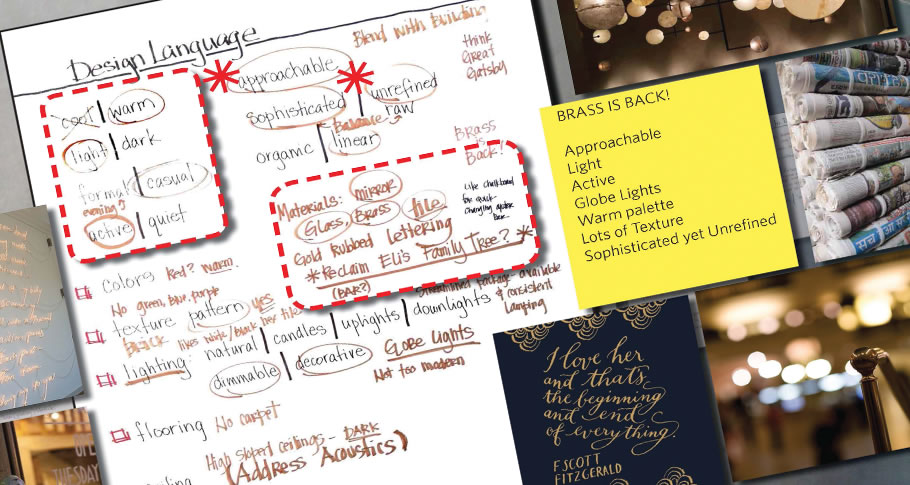 Design Language
Blend with building!
think
Great
Gatsby
cool | warm
light | dark
formal | casual
evening?
active | quiet
approachable
sophisticated | unrefined
raw
Balance
organic | linear
Brass
is
Back!
Materials: mirror
Glass, Brass tile
Gold Rubbed Lettering
*Reclaim Eli's Family Tree?*
(BAR?)
Like chalkboard
for quick
changing
colors Red? warm.
No green, blue, purple
texture pattern yes
Brick likes white/black
lighting: natural | candles | uplights | downlights
streamlined package available
& consistent
lamping
dimmable | decorative Globe Lights
Not too modern
flooring No carpet
High sloped ceilings - DARK
(Address Acoustics)
BRASS IS BACK!
Approachable
Light
Active
Globe Lights
Warm palette
Lots of Texture
Sophisticated yet Unrefined
I love her
and that's
the beginning
and end
of everything.
F SCOTT
FITZGERALD
OPEN
TUESDAY